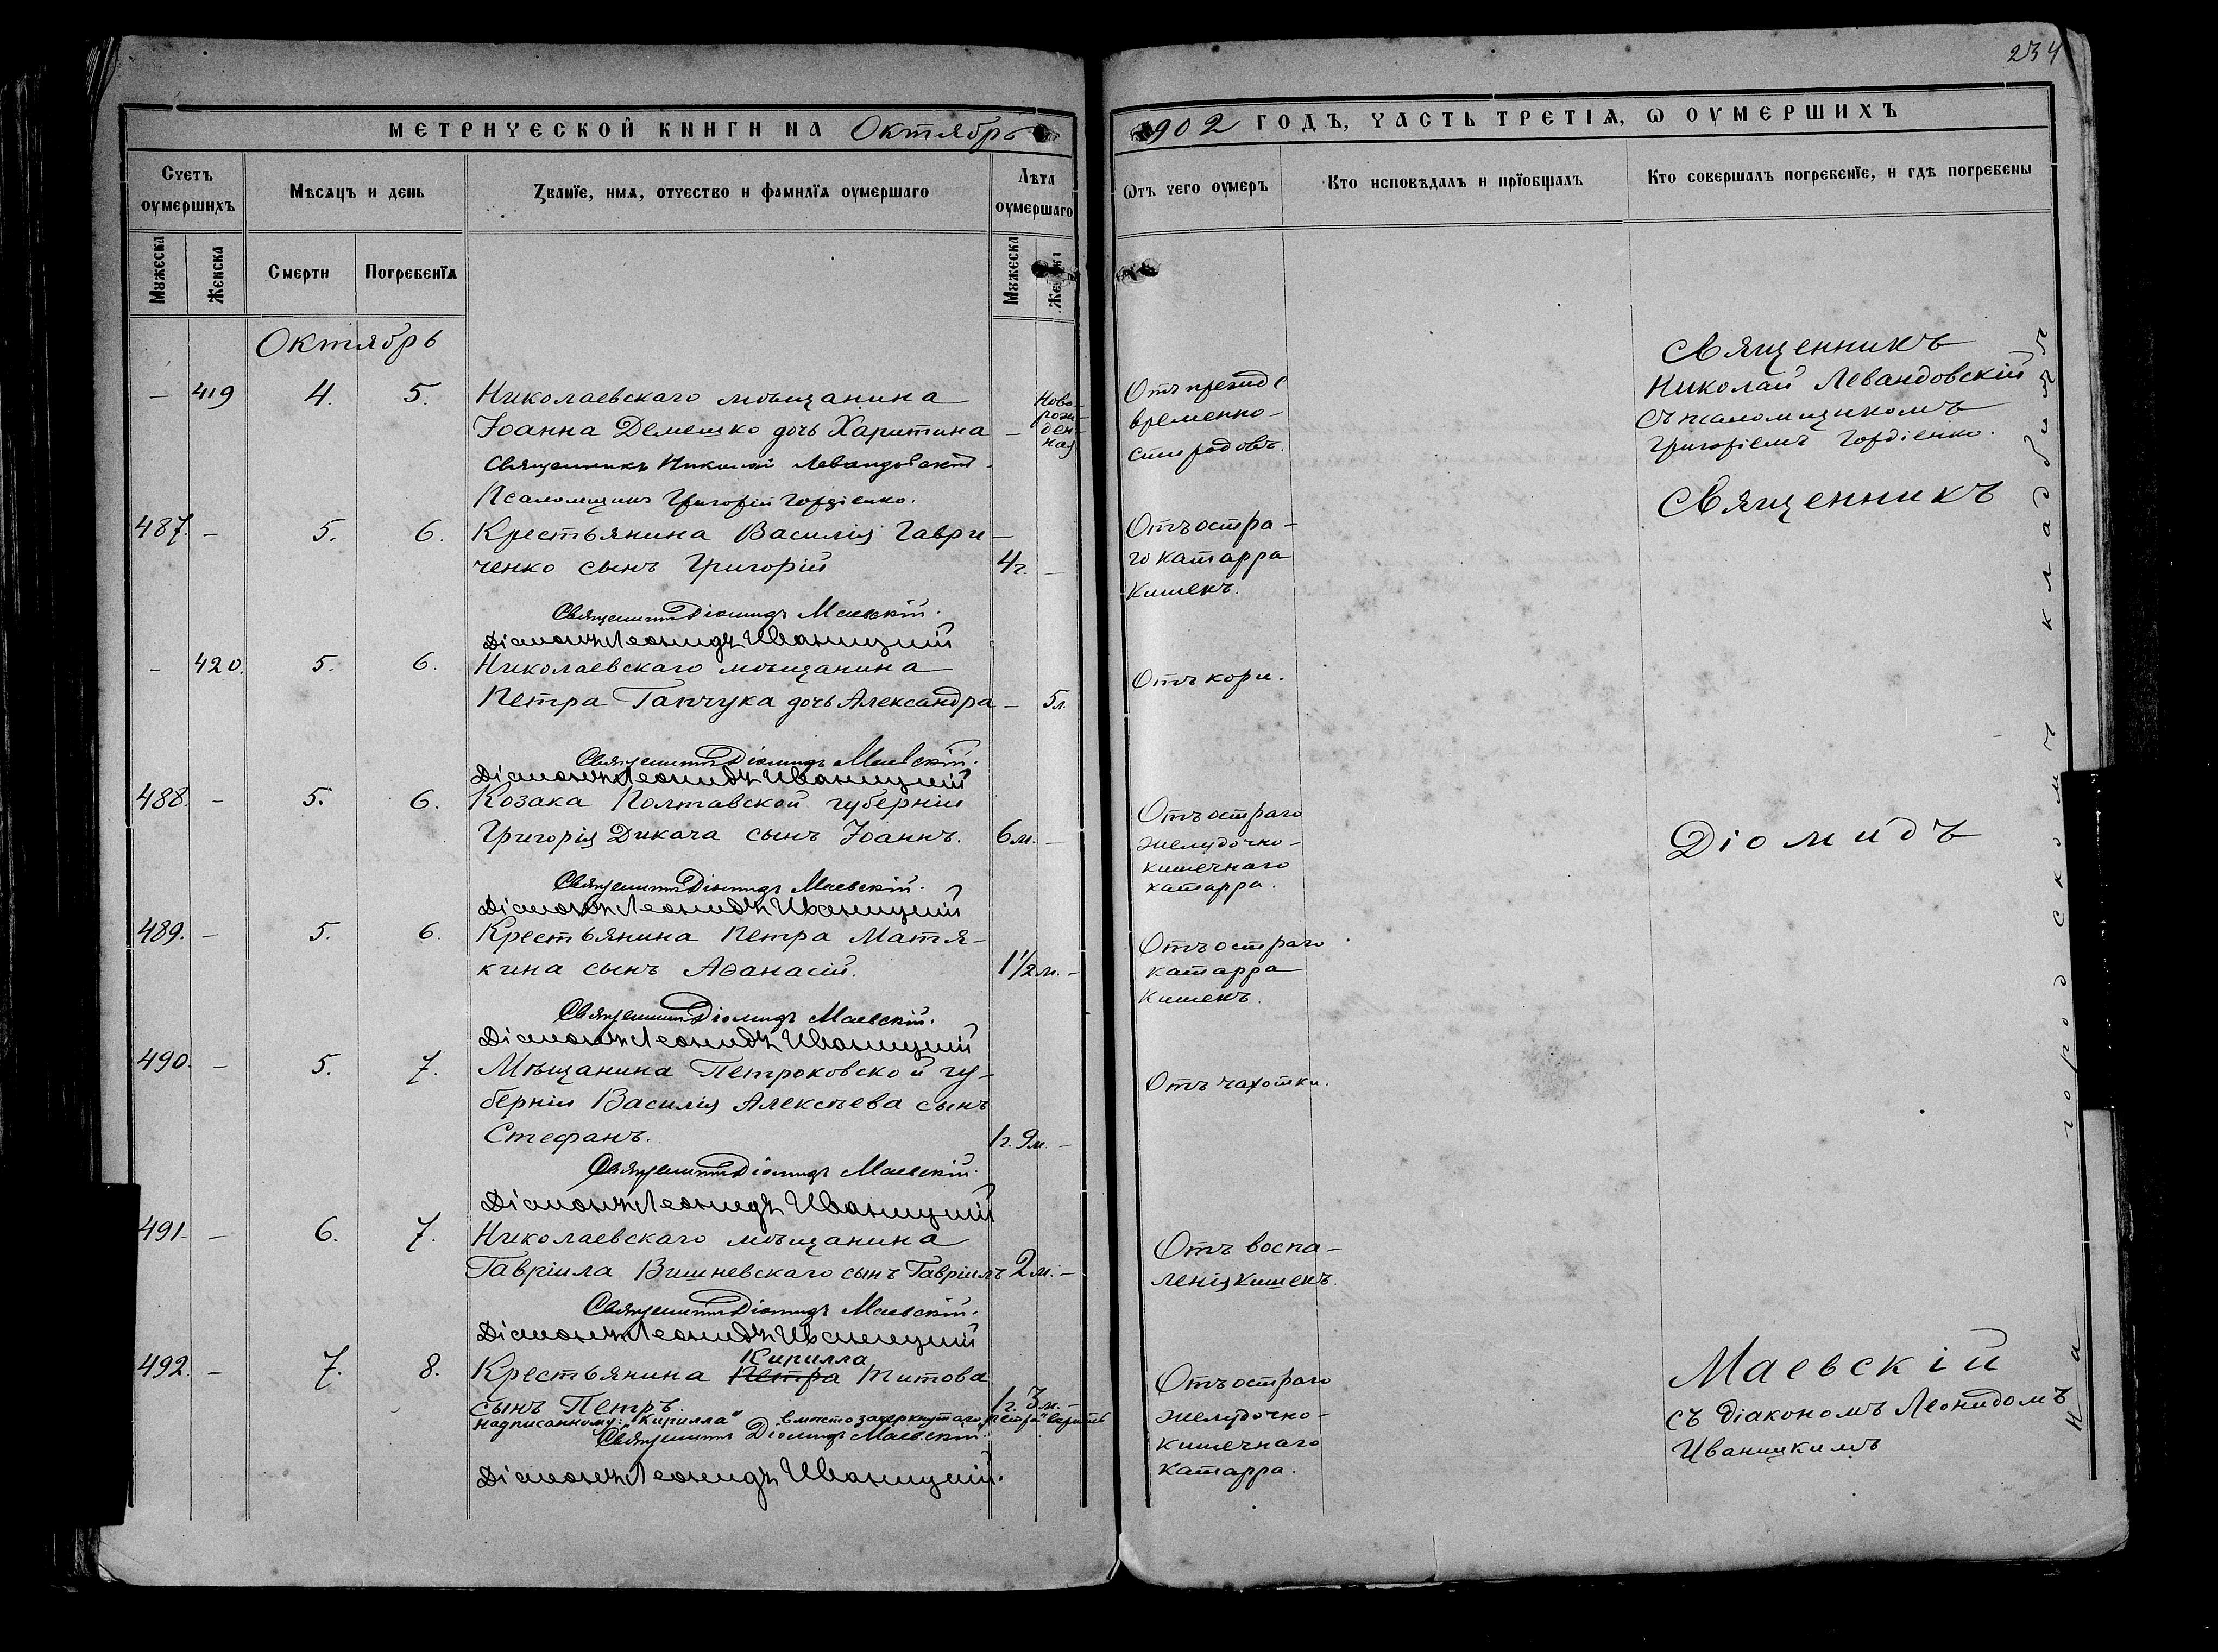 234
МЕТРИЧЕСКОЙ КНИГИ НА Октябрь 1902 ГОДЪ, ЧАСТЬ ТРЕТІѦ, Ѡ ОУМЕРШИХЪ
Счетъ оумершихъ
Мѣсяцъ и день
Званїе, имѧ, отчество и фамилїѧ оумершаго
Лѣта оумершаго
Ѿтъ чего оумеръ
Кто исповѣдалъ и прїобщалъ
Кто совершалъ погребенїе, и гдѣ погребены
Мужеска
Женска
Смерти
Погребенїѧ
Мужеска
Октябрь
– 419 4. 5. Николаевскаго мѣщанина
Іоанна Демешко дочь Харитина –
Ново-
рож-
ден-
ная
Священникъ Николай Левандовскій.
Псаломщикъ Григорій Гордіенко.
Отъ прежде
временно-
сти родовъ.
Священникъ
Николай Левандовскій
съ псаломщикомъ
Григоріемъ Гордіенко.
487. – 5. 6. Крестьянина Василія Гаври-
ченко сынъ Григорій 4 г. –
Священникъ Діомидъ Маевскій.
Діаконъ Леонидъ Иваницкій
Отъ остра-
го катарра
кишекъ.
Священникъ
– 420. 5. 6. Николаевскаго мѣщанина
Петра Ганчука дочь Александра – 5 л.
Священникъ Діомидъ Маевскій.
Діаконъ Леонидъ Иваницкій
Отъ кори.
488. – 5. 6. Козака Полтавской губерніи
Григорія Дикача сынъ Іоаннъ. 6 м. –
Священникъ Діомидъ Маевскій.
Діаконъ Леонидъ Иваницкій
Отъ остраго
желудочно-
кишечнаго
катарра.
Діомидъ
489. – 5. 6. Крестьянина Петра Матя-
кина сынъ Аѳанасій. 1 1/2 м. –
Священникъ Діомидъ Маевскій.
Діаконъ Леонидъ Иваницкій
Отъ остраго
катарра
кишекъ.
490. – 5. 7. Мѣщанина Петроковской гу-
берніи Василія Алексѣева сынъ
Стефанъ. 1 г. 9 м. –
Священникъ Діомидъ Маевскій.
Діаконъ Леонидъ Иваницкій
Отъ чахотки.
491. – 6. 7. Николаевскаго мѣщанина
Гавріила Вишневскаго сынъ Гавріилъ 2 м. –
Священникъ Діомидъ Маевскій.
Діаконъ Леонидъ Иваницкій
Отъ воспа-
ленія кишекъ.
Кирилла
492. – 7. 8. Крестьянина Петра Титова
сынъ Петръ. 1 г. 3 м. –
надписанному: "Кирилла" вмѣсто зачеркнутаго "Петра" вѣрить
Священникъ Діомидъ Маевскій.
Діаконъ Леонидъ Иваницкій.
Отъ остраго
желудочно-
кишечнаго
катарра.
Маевскій
съ діакономъ Леонидомъ
Иваницкимъ
На городскомъ кладбищѣ